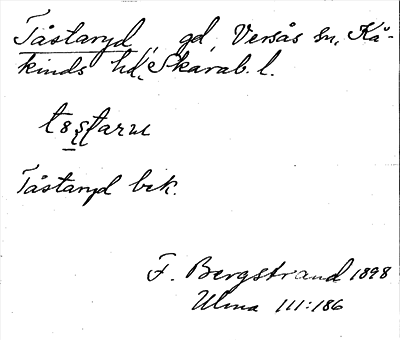 Tåstaryd, gd, Versås sn, Kå-
kinds hd, Skarab. l.
Tåstaryd bek.
F. Bergstrand 1898
Ulma 111:186